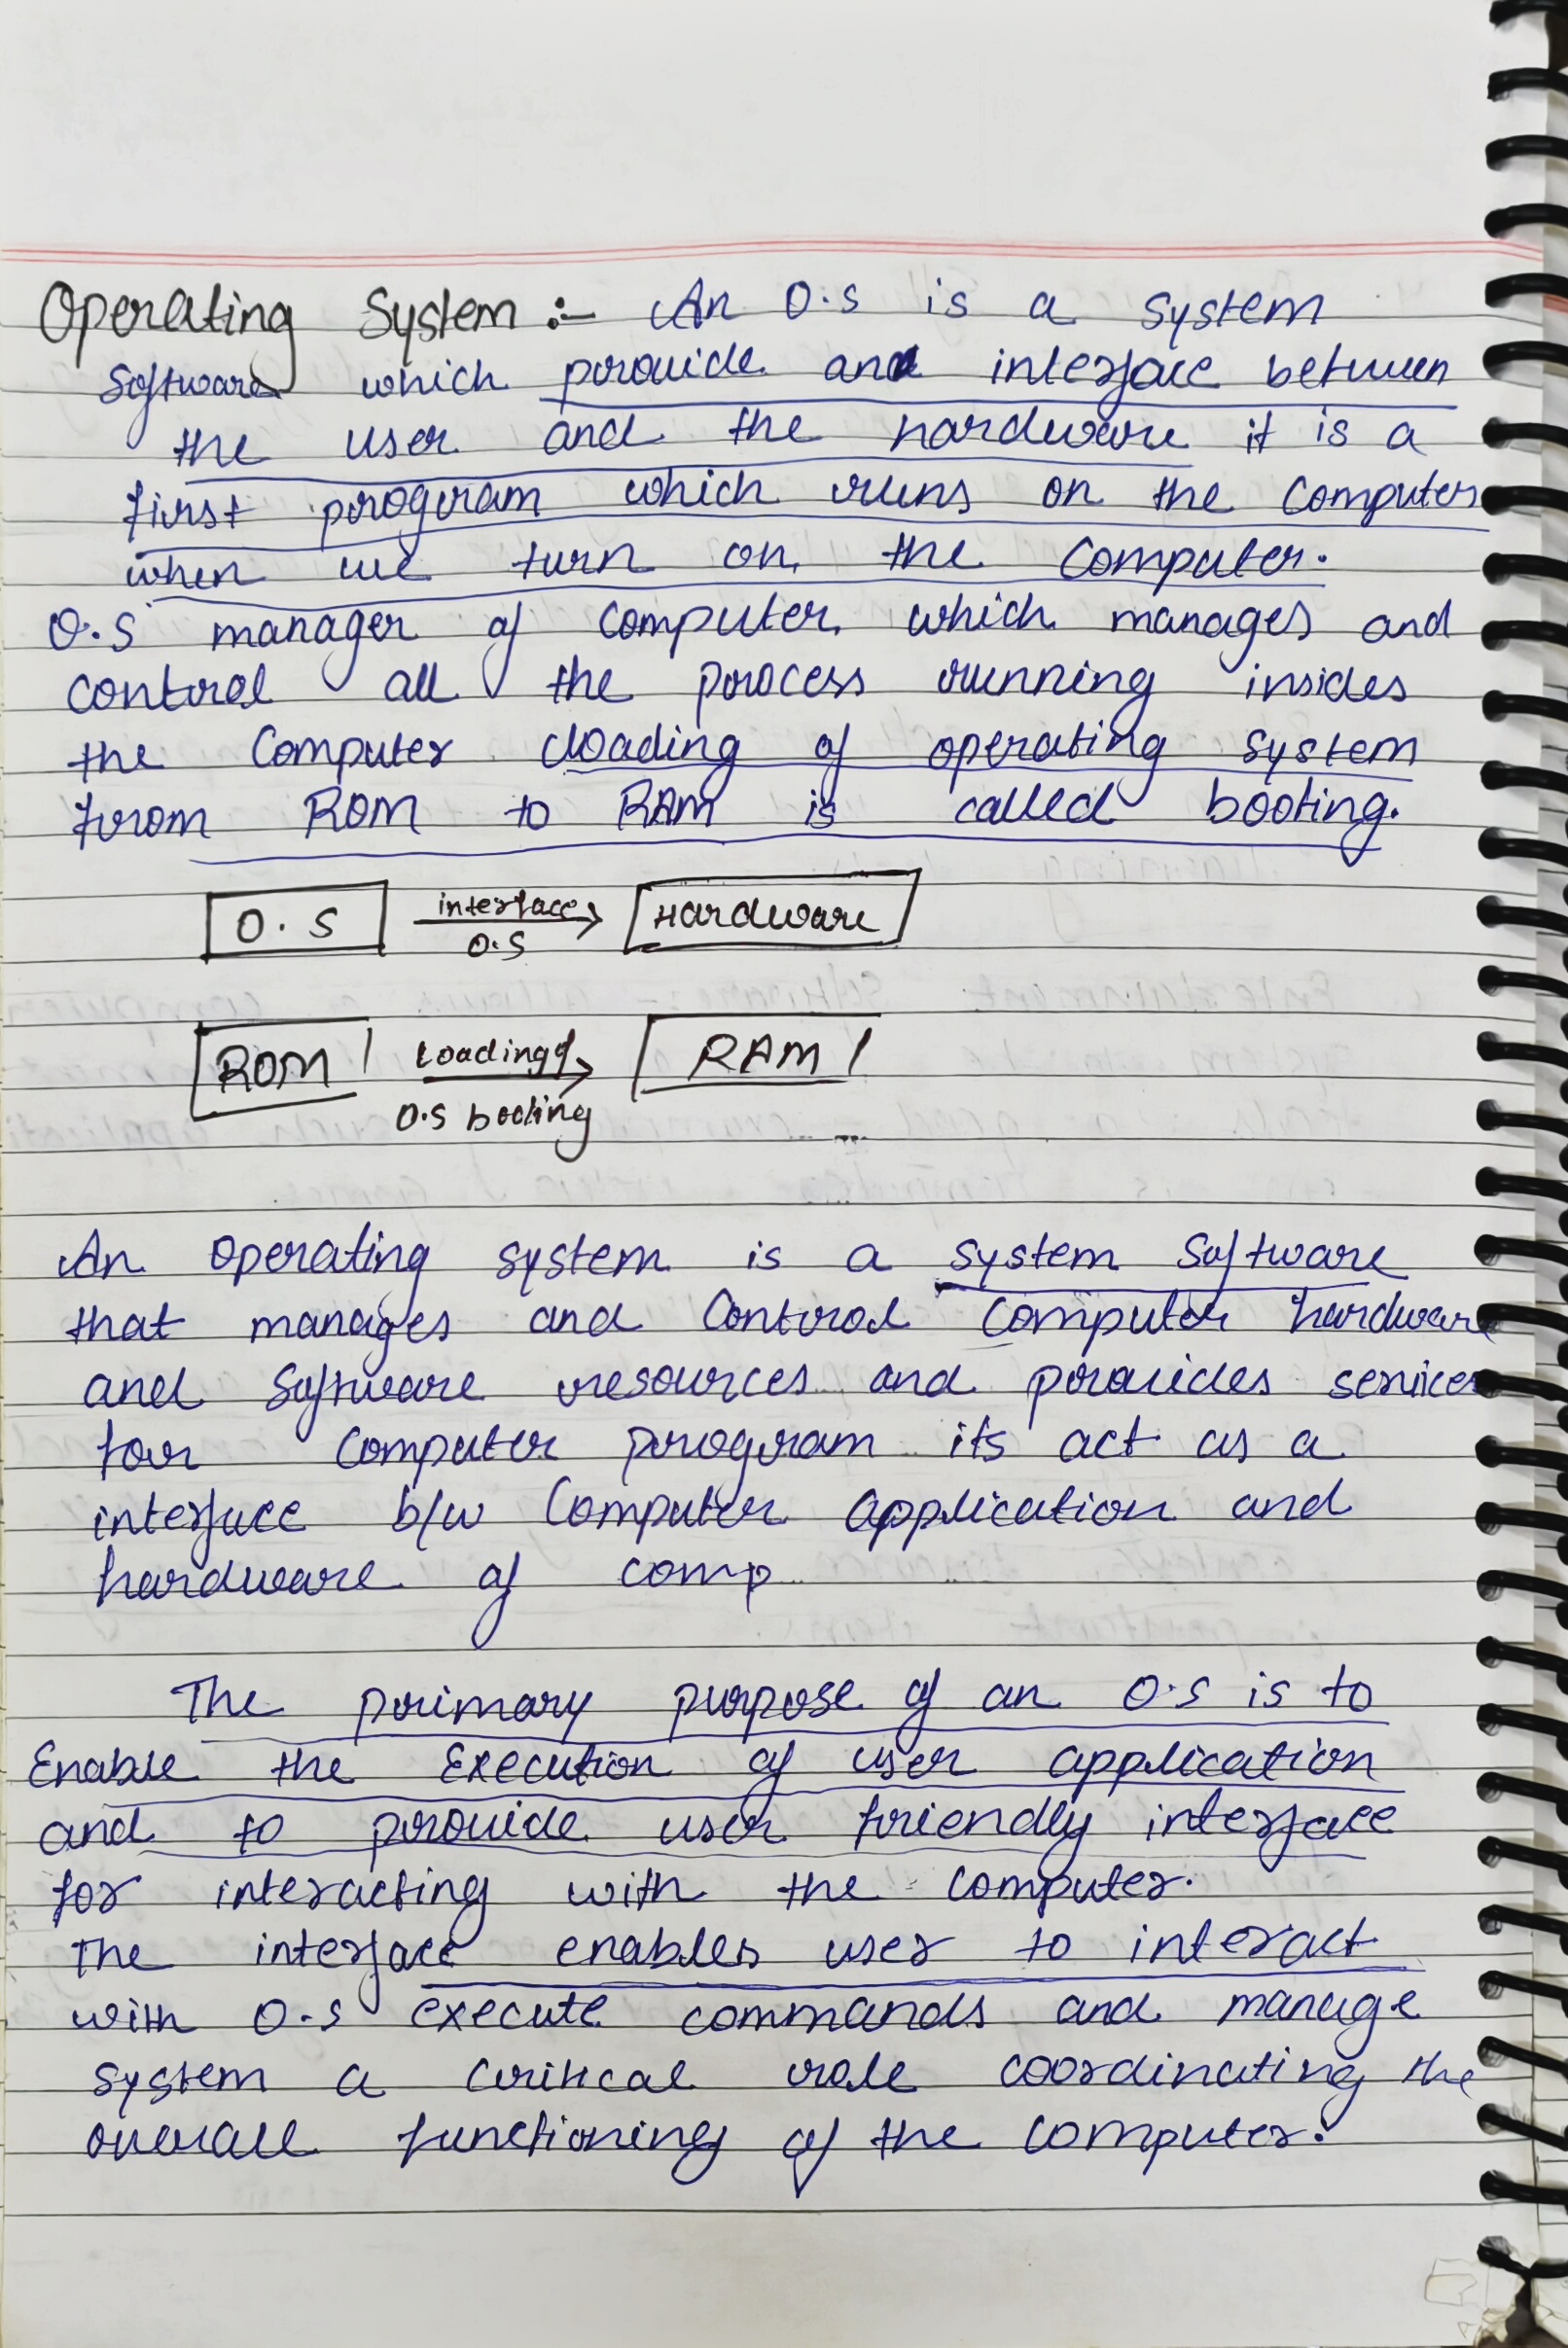 Operating System :- An O.S is a system
Software which provide and interface between
the user and the hardware it is a
first program which runs on the Computer
when we turn on the Computer.
O.S manager of computer which manages and
control all the process running insides
the Computer loading of operating system
from ROM to RAM is called booting.
O.S interface O.S Hardware
ROM Loading of O.S booting RAM
An Operating system is a system Software
that manages and Control Computer hardware
and Software resources and provides services
for Computer program its act as a
interface b/w Computer Application and
hardware of comp
The primary purpose of an O.S is to
Enable the Execution of user application
and to provide user friendly interface
for interacting with the computer.
The interface enables user to interact
with O.S execute commands and manage
system a critical role coordinating the
overall functioning of the computer.